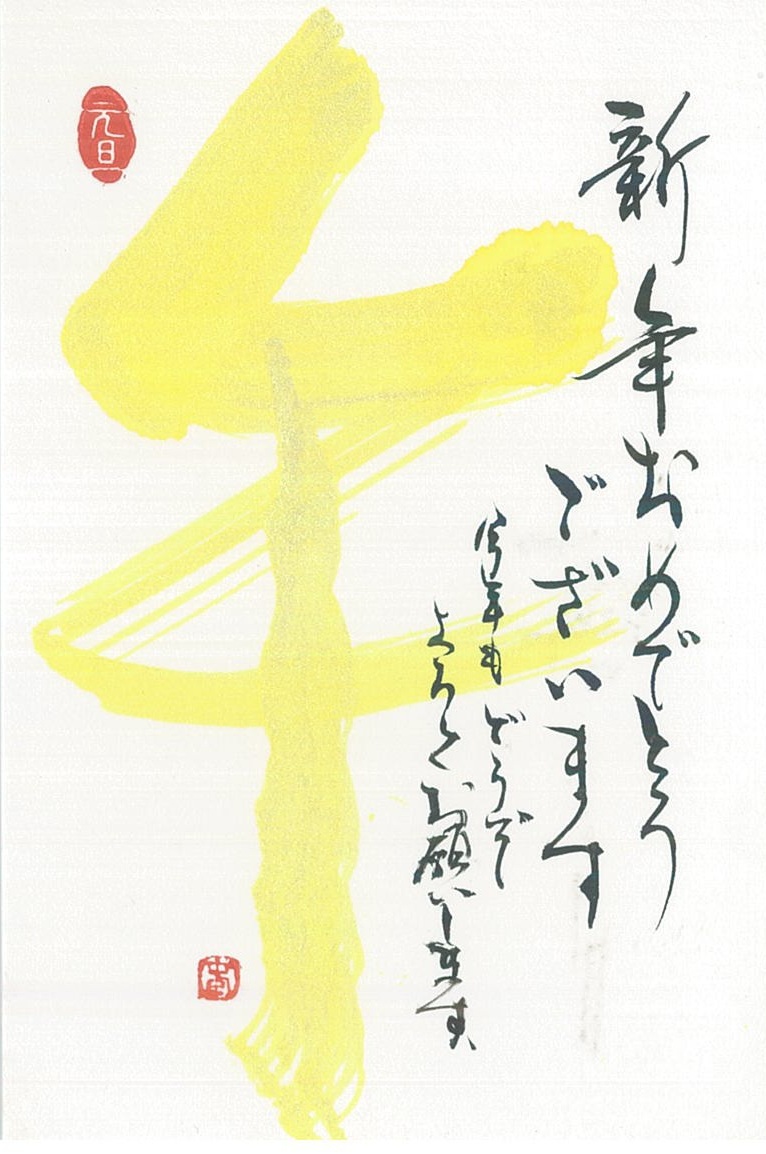 新年おめでとう
ございます
今年もどうぞ
よろしくお願いします
午
元旦